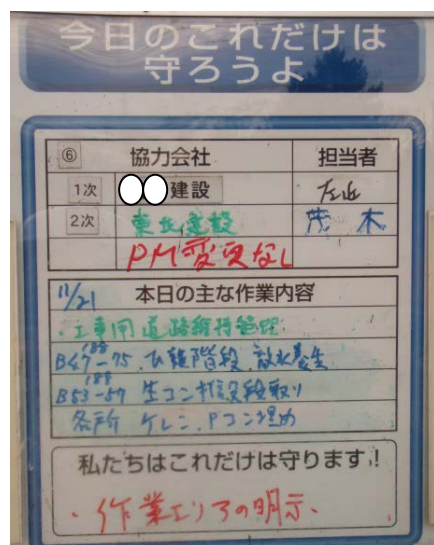 今日のこれだけは
守ろうよ
⑥ 協力会社 担当者
1次 建設 左近
2次 東北建設 茂木
PM変更なし
11/21 本日の主な作業内容
・工事用道路維持管理
B47-75
188
B53-57 生コン打設段取り
各所 ケレン、Pコン埋め
私たちはこれだけは守ります!
・作業エリアの明示、